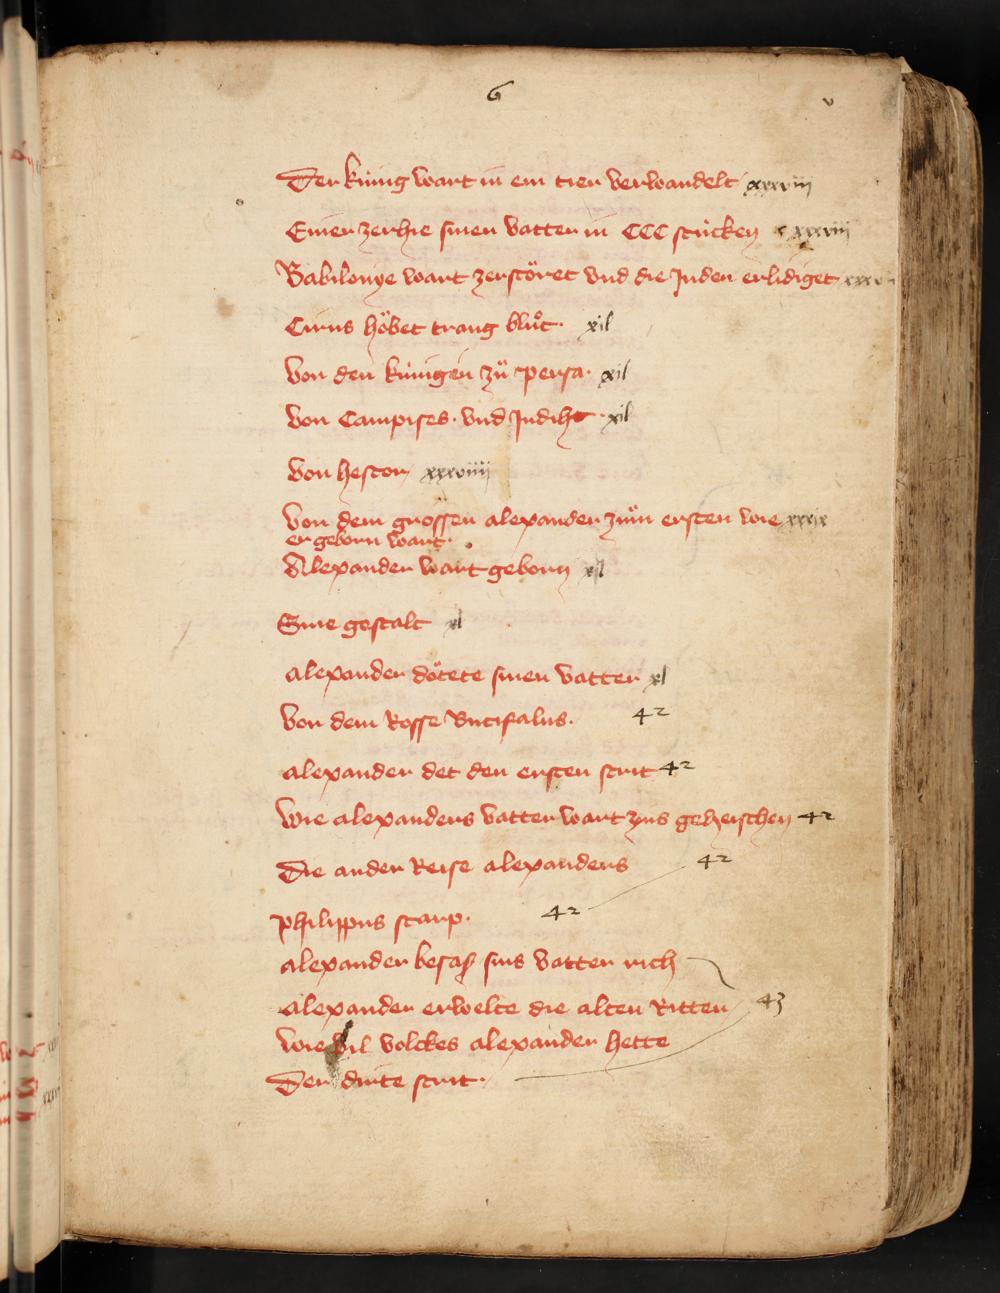 6 v
Der kúnig wart in ein tier verwandelt xxxviii
Einer zerhie sinen vatter in CCC stúcken xxxviii
Babilonye wart zerstöret vnd die Juden erlidiget
Cirus höbet trang blůt. xil
Von den kúnigen zů persa. xil
Von Campises. vnd Judiht. xil
Von hester xxxviiii
Von dem grossen alexander zům ersten wie xxxix
er geborn wart.
Alexander wart geborn xl
Sine gestalt xl
alexander dötete sinen vatter xl
Von dem Rosse Bucifalus. 42
alexander det den ersten strit 42
Wie alexanders vatter wart zins geheischen 42
Die ander Reise alexanders 42
philippus starp. 42
alexander besaß sins vatter rich
alexander erwelte die alten Ritter 43
Wie vil volckes alexander hette
Der dirte strit.